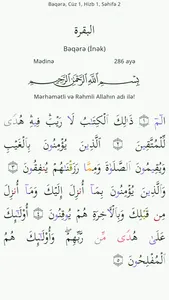 Baqərə, Cüz 1, Hizb 1, Səhifə 2
البقرة
Bəqərə (İnək)
Mədinə 286 ayə
بِسْمِ اللَّهِ الرَّحْمَٰنِ الرَّحِيمِ
Mərhəmətli və Rəhmli Allahın adı ilə!
الٓمٓ ۝١ ذَٰلِكَ الْكِتَابُ لَا رَيْبَ فِيهِ هُدًى
لِّلْمُتَّقِينَ ۝٢ الَّذِينَ يُؤْمِنُونَ بِالْغَيْبِ
وَيُقِيمُونَ الصَّلَاةَ وَمِمَّا رَزَقْنَاهُمْ يُنفِقُونَ ۝٣
وَالَّذِينَ يُؤْمِنُونَ بِمَا أُنزِلَ إِلَيْكَ وَمَا أُنزِلَ
مِن قَبْلِكَ وَبِالْآخِرَةِ هُمْ يُوقِنُونَ ۝٤ أُولَٰئِكَ
عَلَىٰ هُدًى مِّن رَّبِّهِمْ وَأُولَٰئِكَ هُمُ
الْمُفْلِحُونَ ۝٥